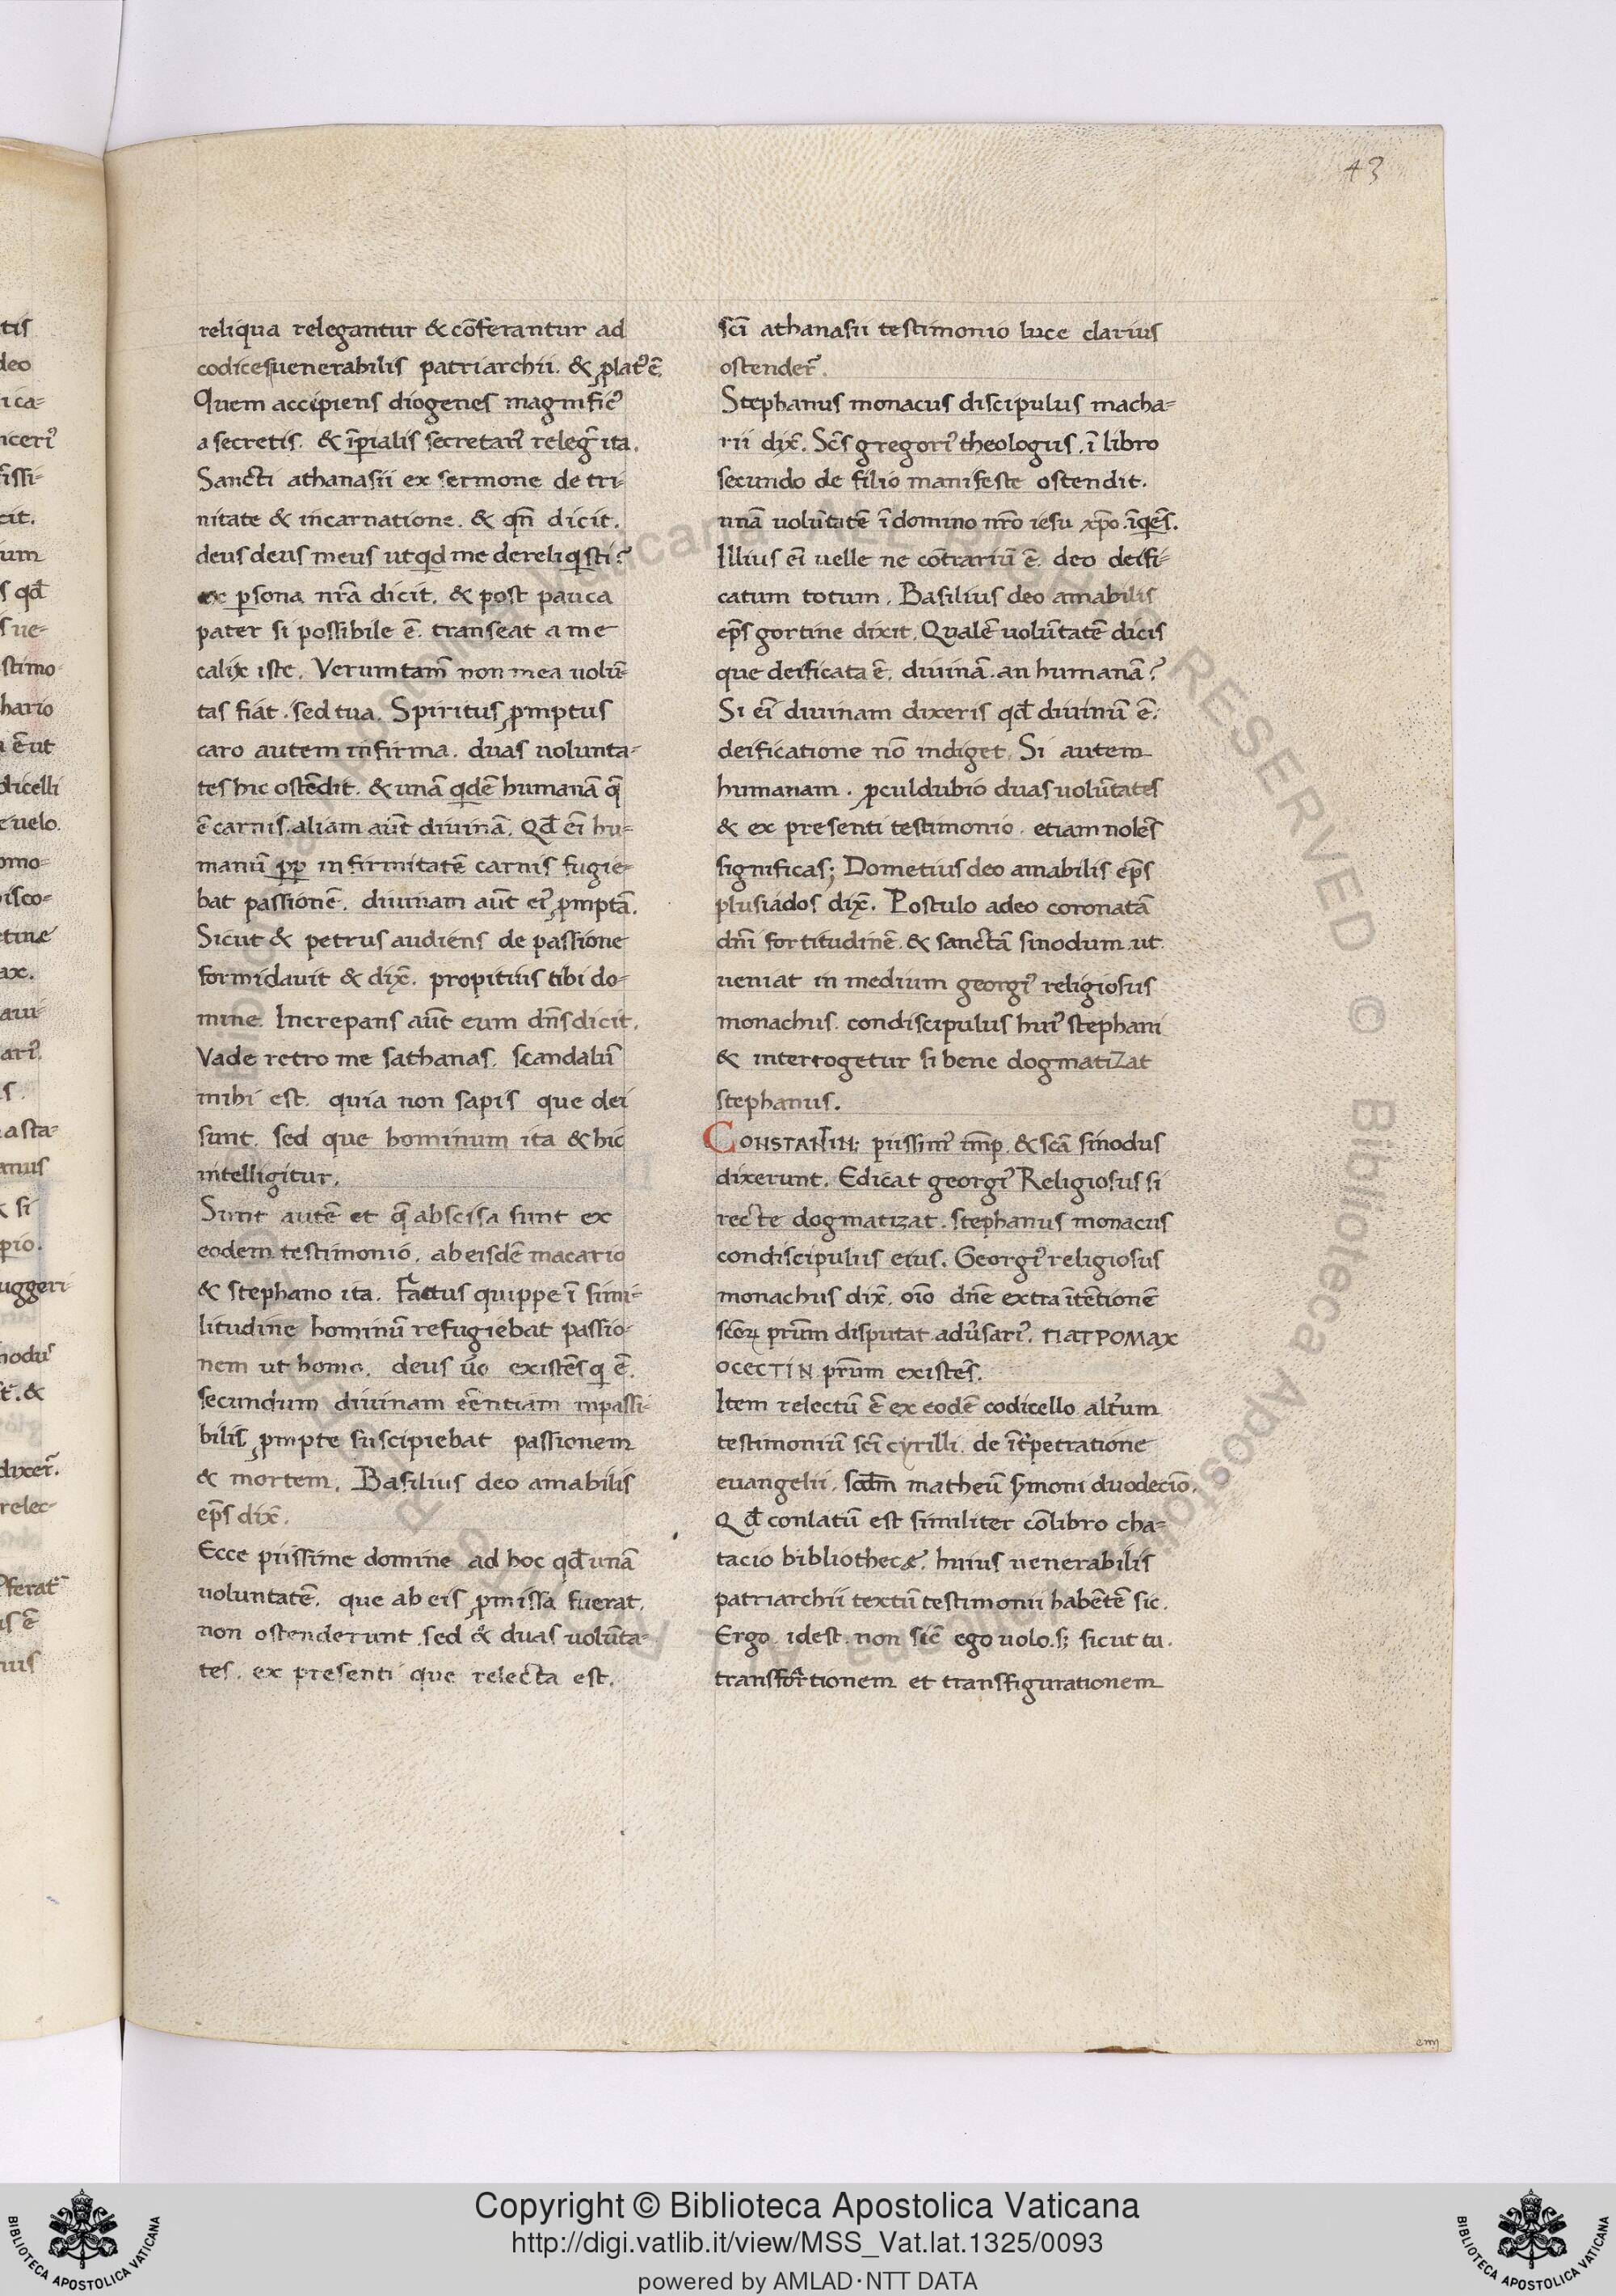 43
reliqua relegantur & cōferantur ad
codices uenerabilis patriarchii. & ꝓlatꝰ ē.
Quem accipiens diogenes magnificꝰ
a secretis. & īp̱ialis secretariꝰ relegr̄ ita.
Sancti athanasii ex sermone de tri-
nitate & incarnatione. & qn̄ dicit.
deus deus meus ut qd me dereliqsti?
ex p̱sona nr̄a dicit. & post pauca
pater si possibile ē. transeat a me
calix iste. Verumtam̄ non mea uolū-
tas fiat. sed tua. Spiritus ꝓmptus
caro autem infirma. duas uolunta-
tes hic ostēdit. & unā qdē humanā q̄
ē carnis. aliam aūt diuinā. Qđ eī hu-
manū pp̱ infirmitatē carnis fugie-
bat passionē. diuinam aūt eiꝰ ꝓmptā.
Sicut & petrus audiens de passione
formidauit & dix̄. propitius tibi do-
mine. Increpans aūt eum dn̄s dicit.
Vade retro me sathanas. scandalū
mihi est. quia non sapis que dei
sunt. sed que hominum ita & hic
intelligitur.
Sunt autē et q̄ abscisa sunt ex
eodem testimonio. ab eisdē macario
& stephano ita. Factus quippe ī simi-
litudine hominū refugiebat passio-
nem ut homo. deus ūo existēs q ē.
secundum diuinam eēntiam inpassi-
bilis ꝓmpte suscipiebat passionem
& mortem. Basilius deo amabilis
ep̄s dix̄.
Ecce piissime domine ad hoc qđ unā
uoluntatē. que ab eis ꝓmissa fuerat.
non ostenderunt. sed & duas uolūta-
tes. ex presenti que relecta est.
scī athanasii testimonio luce clarius
ostender̄.
Stephanus monacus discipulus macha-
rii dix̄. Sc̄s gregoriꝰ theologus. ī libro
secundo de filio manifeste ostendit.
unā uolūtatē ī domino nr̄o iesu xp̄o. īqēs.
Illius eī uelle ne cōtrariū ē. deo deifi-
catum totum. Basilius deo amabilis
ep̄s gortine dixit. Qualē uolūtatē dicis
que deificata ē. diuinā. an humanā?
Si eī diuinam dixeris qđ diuinū ē.
deificatione nō indiget. Si autem
humanam. ꝓculdubio duas uolūtates
& ex presenti testimonio. etiam nolēs
significas; Dometius deo amabilis ep̄s
plusiados dix̄. Postulo a deo coronatā
dnī fortitudinē. & sanctā sinodum. ut
ueniat in medium georgiꝰ religiosus
monachus. condiscipulus huiꝰ stephani
& interrogetur si bene dogmatizat
stephanus.
CONSTANTIN; piissimꝰ im̄p. & scā sinodus
dixerunt. Edicat georgiꝰ Religiosus si
recte dogmatizat. stephanus monacus
condiscipulus eius. Georgiꝰ religiosus
monachus dix̄. oīo dn̄e extra ītētionē
scōꝝ pr̄um disputat aduersariꝰ. ΠΑΤΡΟΜΑΧ
ΟCΕCΤΙΝ pr̄um existēs.
Item relectū ē ex eodē codicello altꝰum
testimoniū scī cyrilli. de ītꝰpetratione
euangelii. scd̄m matheū s̄moni duodecīo.
Qđ conlatū est similiter cō libro cha-
tacio bibliothecę. huius uenerabilis
patriarchii textū testimonii habētē sic.
Ergo. idest. non sic̄ ego uolo. s; sicut tu.
transfortionem et transfigurationem
em
Copyright © Biblioteca Apostolica Vaticana
http://digi.vatlib.it/view/MSS_Vat.lat.1325/0093
powered by AMLAD·NTT DATA
BIBLIOTECA APOSTOLICA VATICANA
BIBLIOTECA APOSTOLICA VATICANA